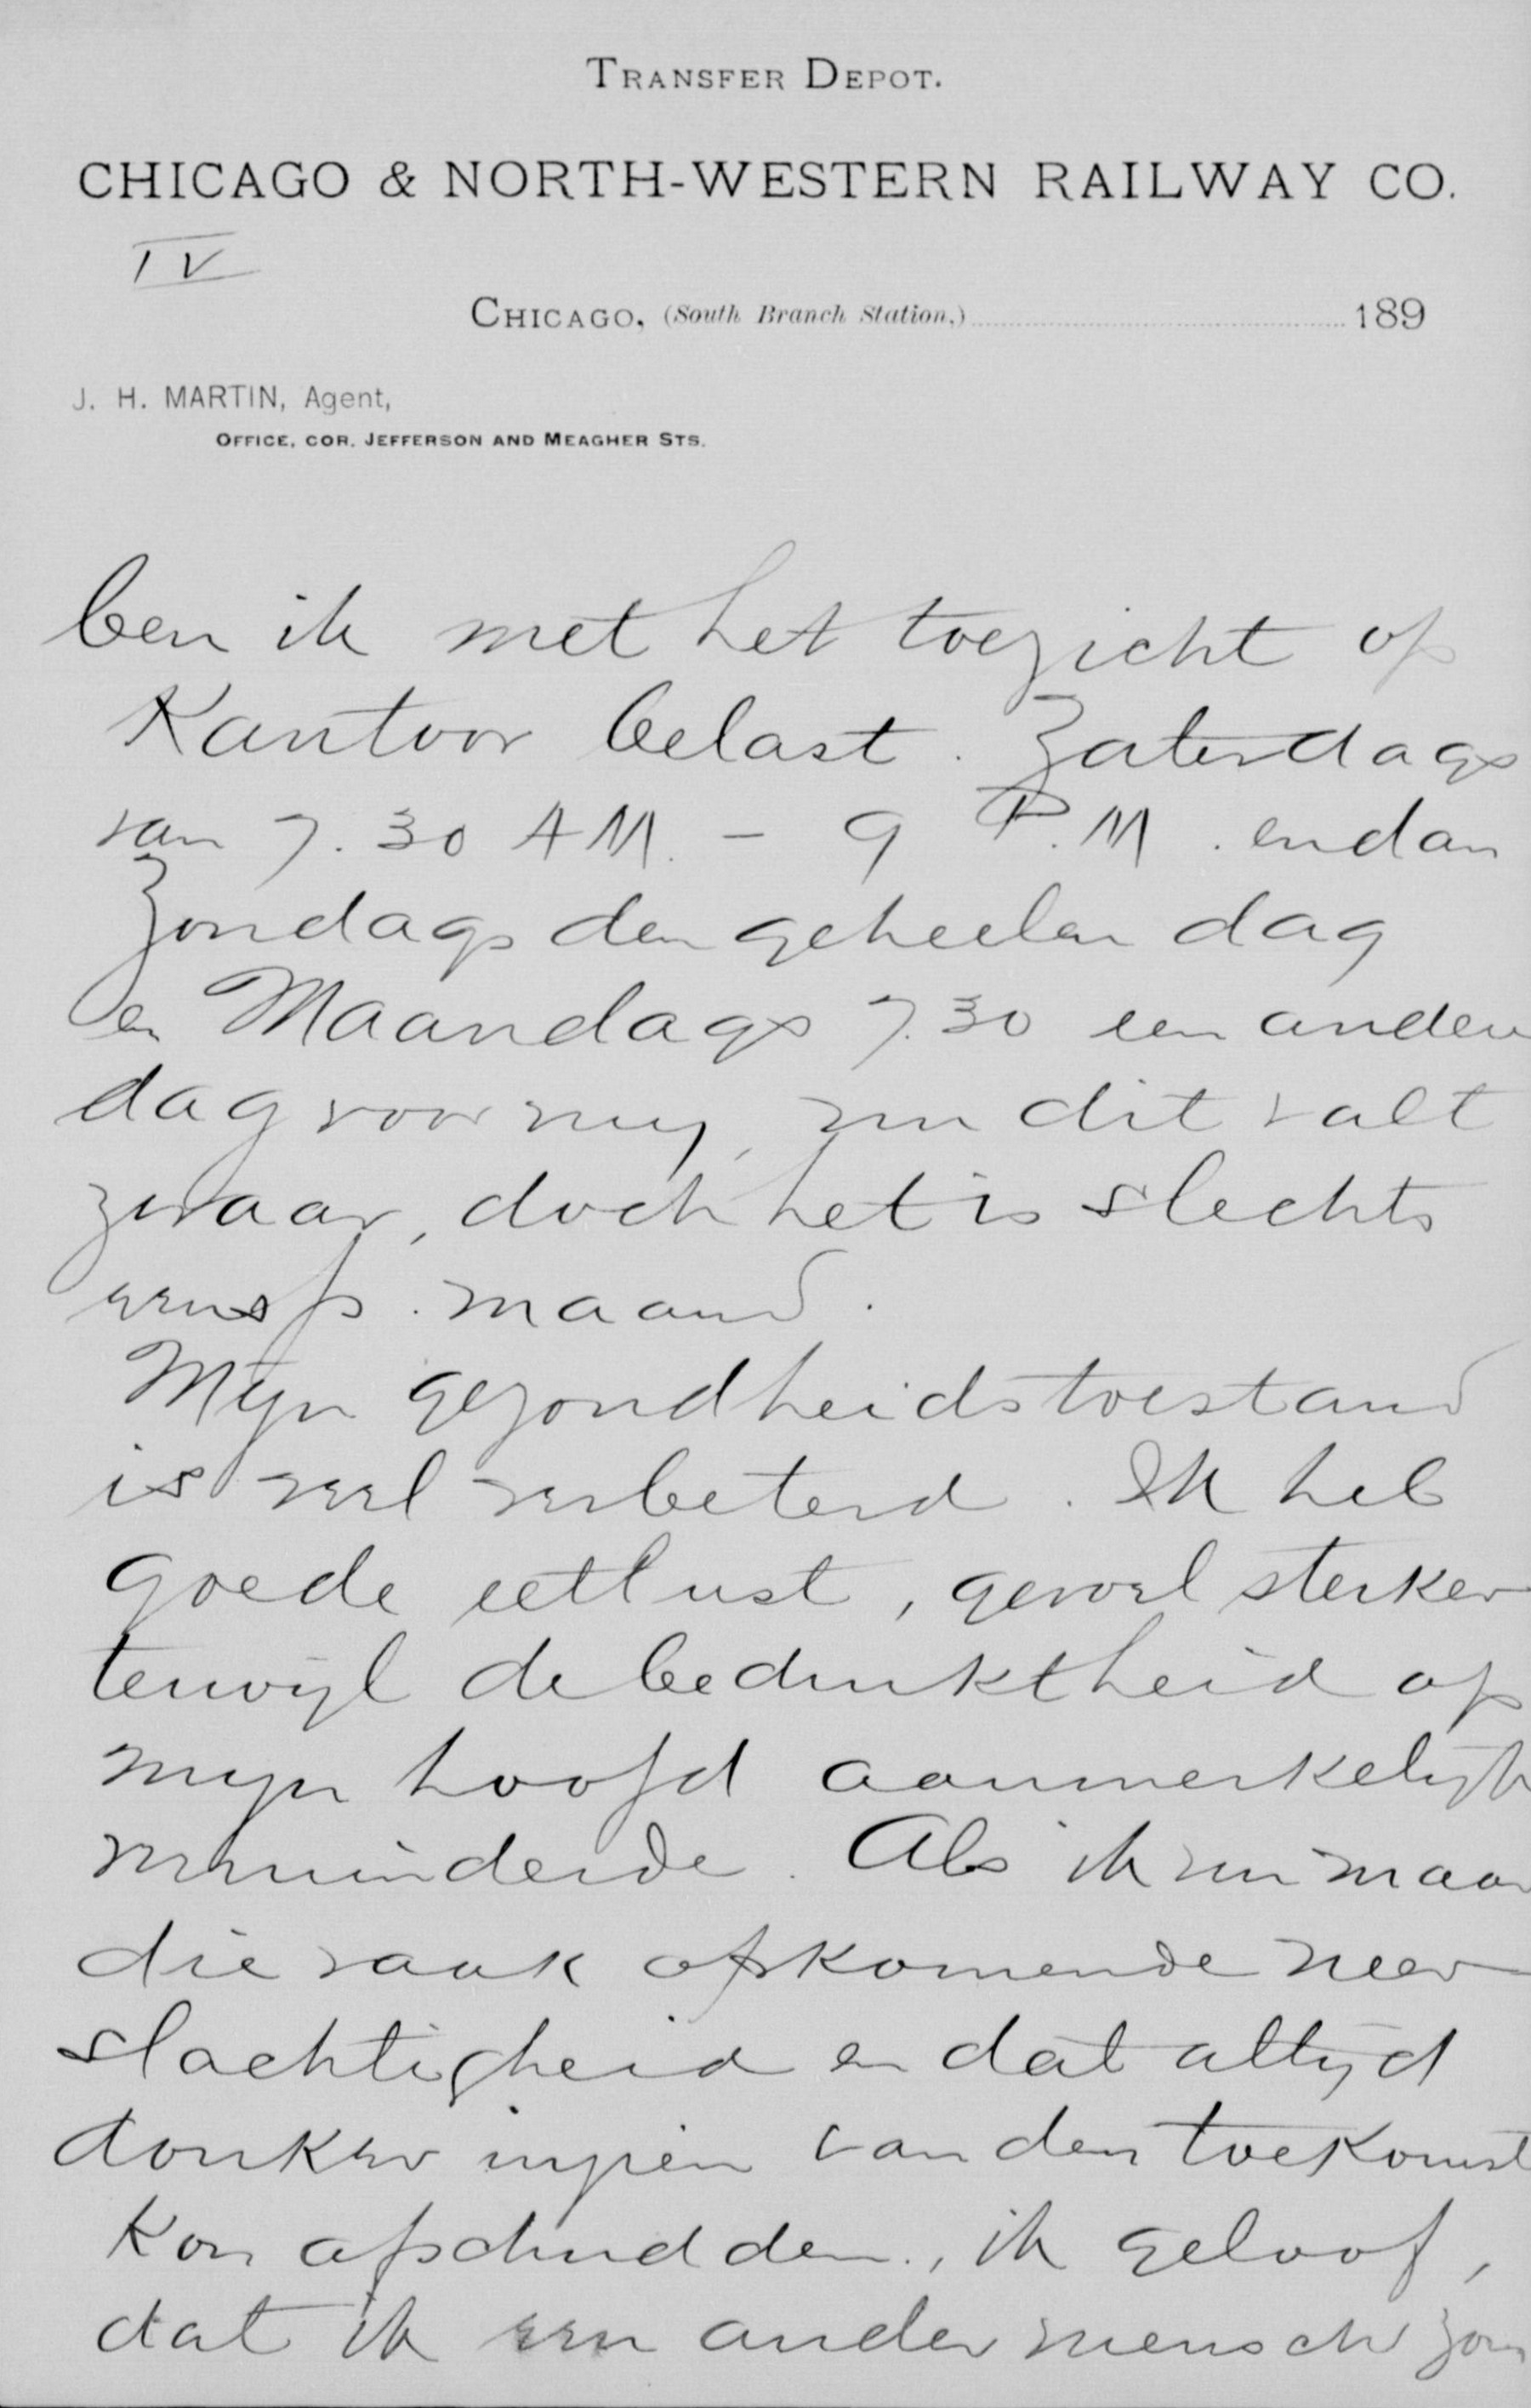 TRANSFER DEPOT.
CHICAGO & NORTH-WESTERN RAILWAY CO.
IV
CHICAGO, (South Branch Station,) 189
J. H. MARTIN, Agent,
OFFICE, COR. JEFFERSON AND MEAGHER STS.
ben ik met het toezicht op
Kantoor belast. Zaterdags
van 7.30 AM. - 9 P.M. en dan
Zondags den geheelen dag
en Maandags 7.30 een andere
dag voor my, nu dit valt
zwaar, doch het is slechts
eens p. maand.
Myn gezondheidstoestand
is veel verbeterd. Ik heb
goede eetlust, gevoel sterker
terwijl de bedruktheid op
myn hoofd aanmerkelijk
verminderde. Als ik nu maar
die vaak opkomende neer
slachtigheid en dat altijd
donker inzien van den toekomst
Kon afschudden, ik geloof,
dat ik een ander mensch zou